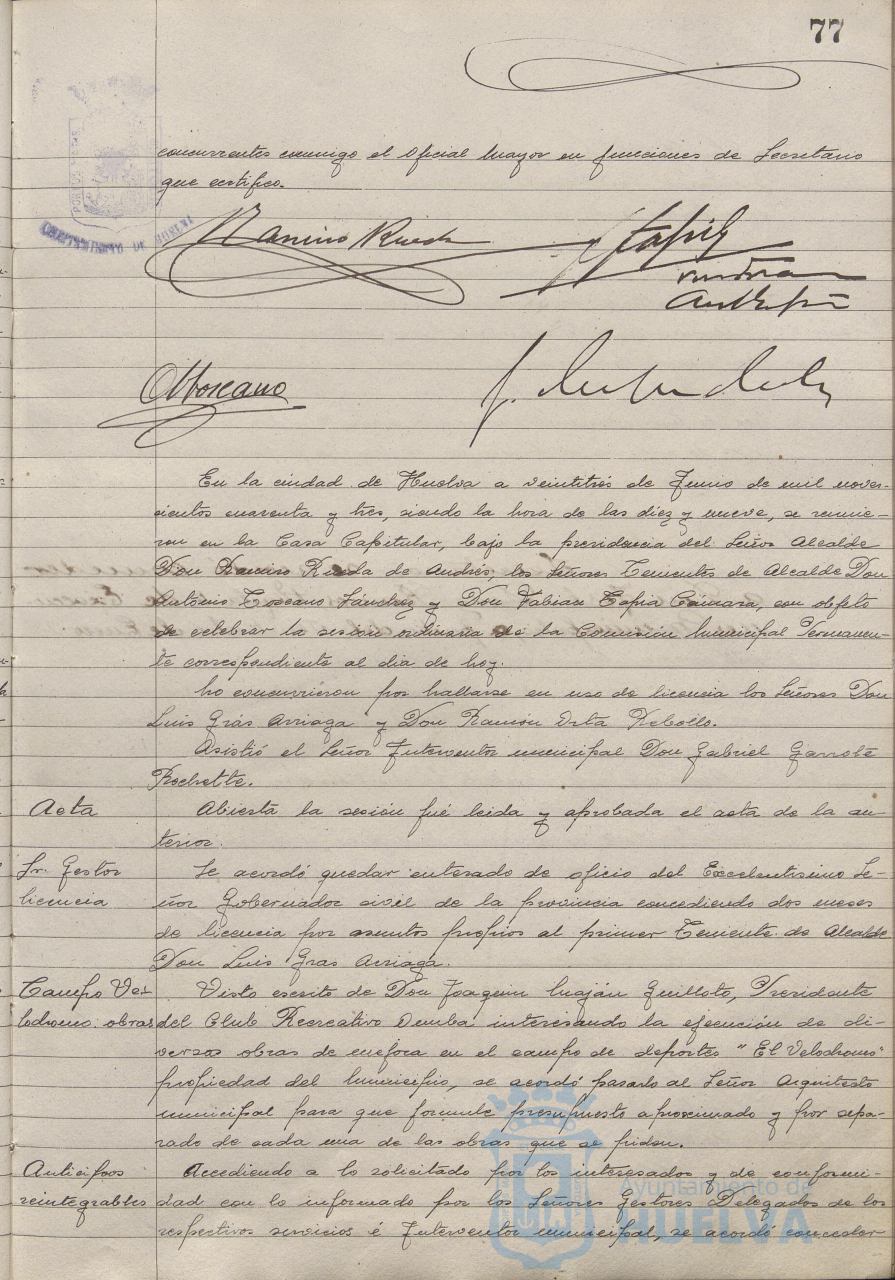 77
concurrentes conmigo el Oficial Mayor en funciones de Secretario
que certifico.
Ramiro Rueda
Tapia
AMToscano
AYUNTAMIENTO DE HUELVA
En la ciudad de Huelva a veintitrés de Junio de mil nove-
cientos cuarenta y tres, siendo la hora de las diez y nueve, se reunie-
ron en la Casa Capitular, bajo la presidencia del Señor Alcalde
Don Ramiro Rueda de Andrés, los Señores Tenientes de Alcalde Don
Antonio Toscano Sánchez y Don Fabian Tapia Cámara, con objeto
de celebrar la sesión ordinaria de la Comisión Municipal Permanen-
te correspondiente al dia de hoy.
No concurrieron por hallarse en uso de licencia los Señores Don
Luis Grás Arriaga y Don Ramón Orta Rebollo.
Asistió el Señor Interventor municipal Don Gabriel Garrote
Rochette.
Acta
Abierta la sesión fué leida y aprobada el acta de la an-
terior.
Sr. Gestor
licencia
Se acordó quedar enterado de oficio del Excelentisimo Se-
ñor Gobernador civil de la provincia concediendo dos meses
de licencia por asuntos propios al primer Teniente de Alcalde
Don Luis Gras Arriaga.
Campo Ve-
lodromo. obras
Visto escrito de Don Joaquin Maján Guilloto, Presidente
del Club Recreativo Onuba interesando la ejecución de di-
versas obras de mejora en el campo de deportes "El Velodromo"
propiedad del Municipio, se acordó pasarlo al Señor Arquitecto
municipal para que formule presupuesto aproximado y por sepa-
rado de cada una de las obras que se piden.
Anticipos
reintegrables
Accediendo a lo solicitado por los interesados y de conformi-
dad con lo informado por los Señores Gestores Delegados de los
respectivos servicios é Interventor municipal, se acordó conceder
Ayuntamiento de
HUELVA